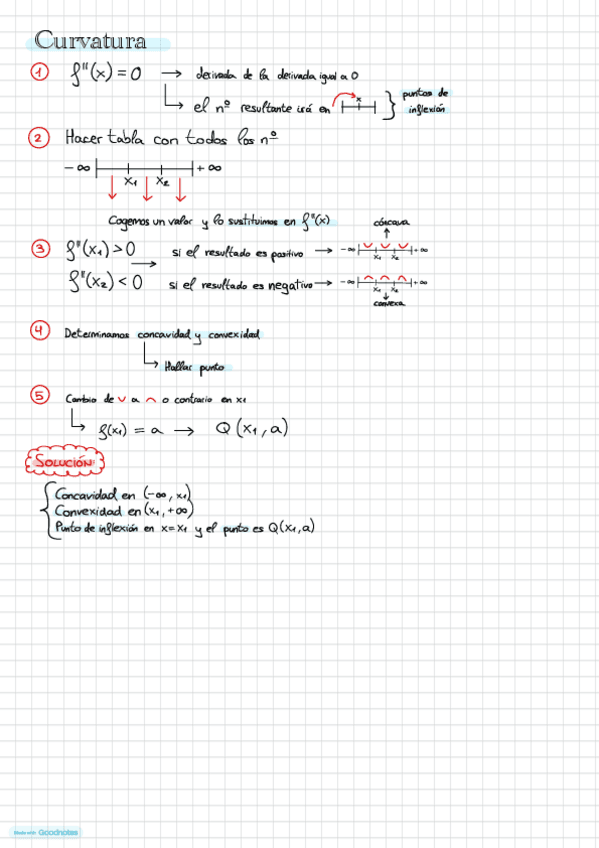 Curvatura
① f''(x) = 0 → derivada de la derivada igual a 0
↳ el nº resultante irá en x } puntos de inflexión
② Hacer tabla con todos los nº
-∞ x₁ x₂ +∞
Cogemos un valor y lo sustituimos en f''(x)
cóncava
③ f''(x₁) > 0 → si el resultado es positivo → -∞ ∪ ∪ ∪ +∞
x₁ x₂
f''(x₂) < 0 si el resultado es negativo → -∞ ∩ ∩ ∩ +∞
x₁ x₂
convexa
④ Determinamos concavidad y convexidad
↳ Hallar punto
⑤ Cambio de ∪ a ∩ o contrario en x₁
↳ f(x₁) = a → Q(x₁, a)
SOLUCIÓN:
Concavidad en (-∞, x₁)
Convexidad en (x₁, +∞)
Punto de inflexión en x=x₁ y el punto es Q(x₁, a)
Made with Goodnotes